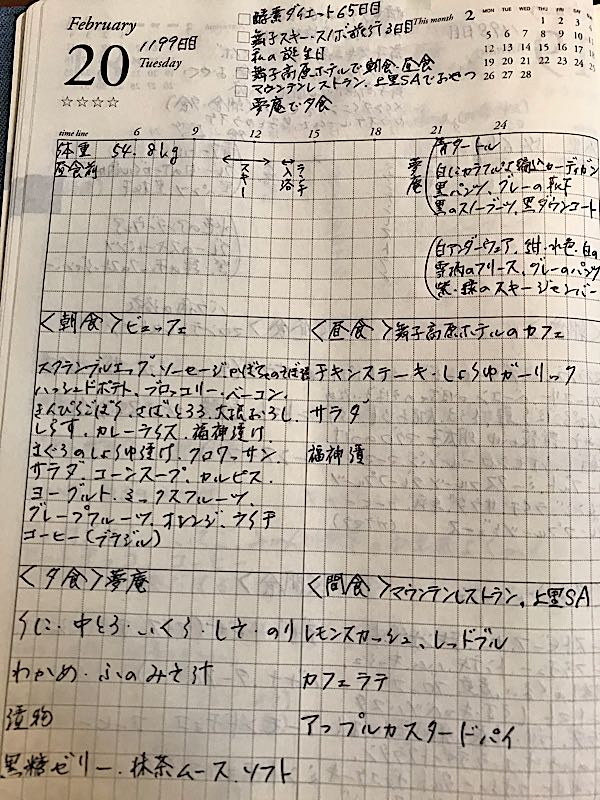 February
20
Tuesday
1199日目
☆☆☆☆
酵素ダイエット65日目
舞子スキー・スノボ旅行3日目
私の誕生日
舞子高原ホテルで朝食・昼食
マウンテンレストラン、上里SAでおやつ
夢庵で夕食
This month 2
MON TUE WED THU FRI SAT
1 2 3
5 6 7 8 9 10
12 13 14 15 16 17
19 20 21 22 23 24
26 27 28
time line 6 9 12 15 18 21 24
体重 54.8kg
昼食前
スキー
入浴
ランチ
夢庵
青タートル
白にカラフルな編込カーディガン
黒パンツ、グレーの
黒のスノーブーツ、黒ダウンコート
白アンダーウェア、紺・水色・白の
雪柄のフリース、グレーのパンツ
紫・緑のスキージャンパー
<朝食>ビュッフェ
スクランブルエッグ、ソーセージ、かぼちゃのそぼろ
ハッシュドポテト、ブロッコリー、ベーコン、
きんぴらごぼう、さば、とろろ、大根おろし、
しらす、カレーライス、福神漬け、
まぐろのしょうゆ漬け、クロワッサン、
サラダ、コーンスープ、カルピス、
ヨーグルト、ミックスフルーツ、
グレープフルーツ、オレンジ、ライチ
コーヒー(ブラジル)
<昼食>舞子高原ホテルのカフェ
チキンステーキ・しょうゆガーリック
サラダ
福神漬
<夕食>夢庵
うに・中とろ・いくら・しそ・のり
わかめ・ふのみそ汁
漬物
黒糖ゼリー、抹茶ムース、ソフト
<間食>マウンテンレストラン、上里SA
レモンスカッシュ、レッドブル
カフェラテ
アップルカスタードパイ